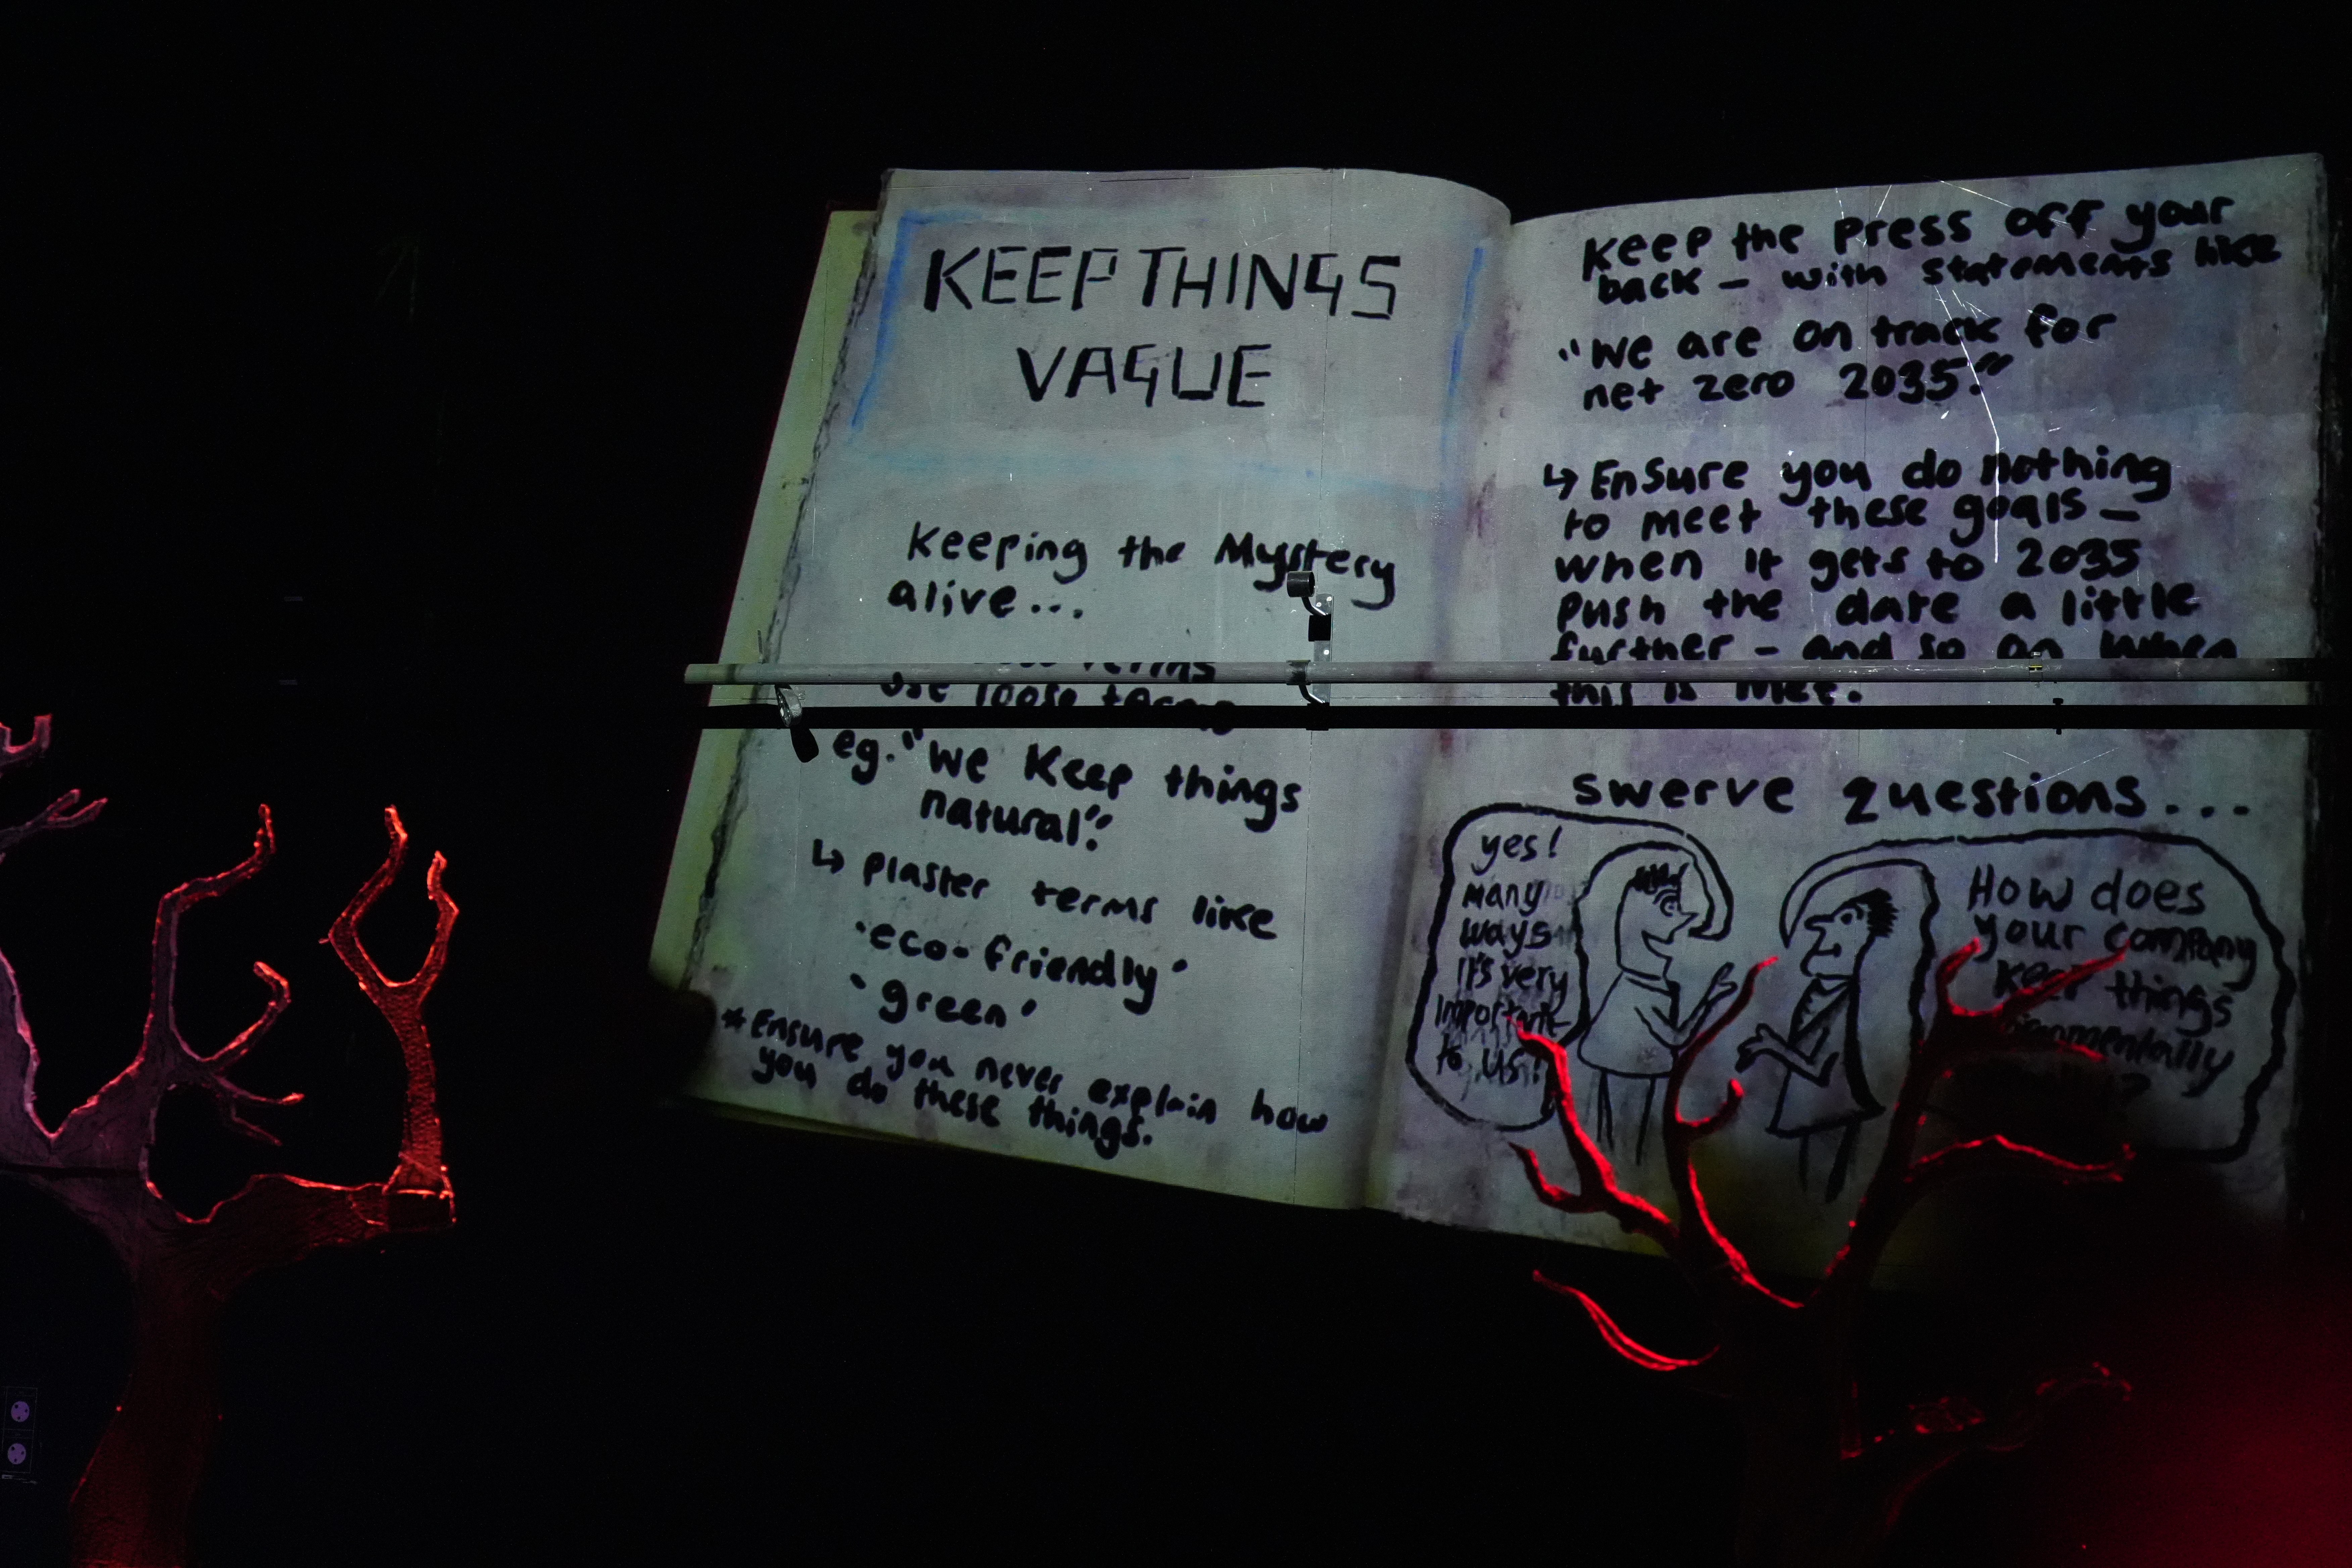 KEEP THINGS
VAGUE
Keeping the Mystery
alive...
use loose terms
eg. "We Keep things
natural".
↳ plaster terms like
'eco-friendly'
'green'
* Ensure you never explain how
you do these things.
Keep the press off your
back - with statements like
"We are on track for
net zero 2035."
↳ Ensure you do nothing
to meet these goals -
when it gets to 2035
push the date a little
further - and so on when
this is met.
swerve questions...
yes!
many
ways
It's very
Important
to us!
How does
your company
keep things